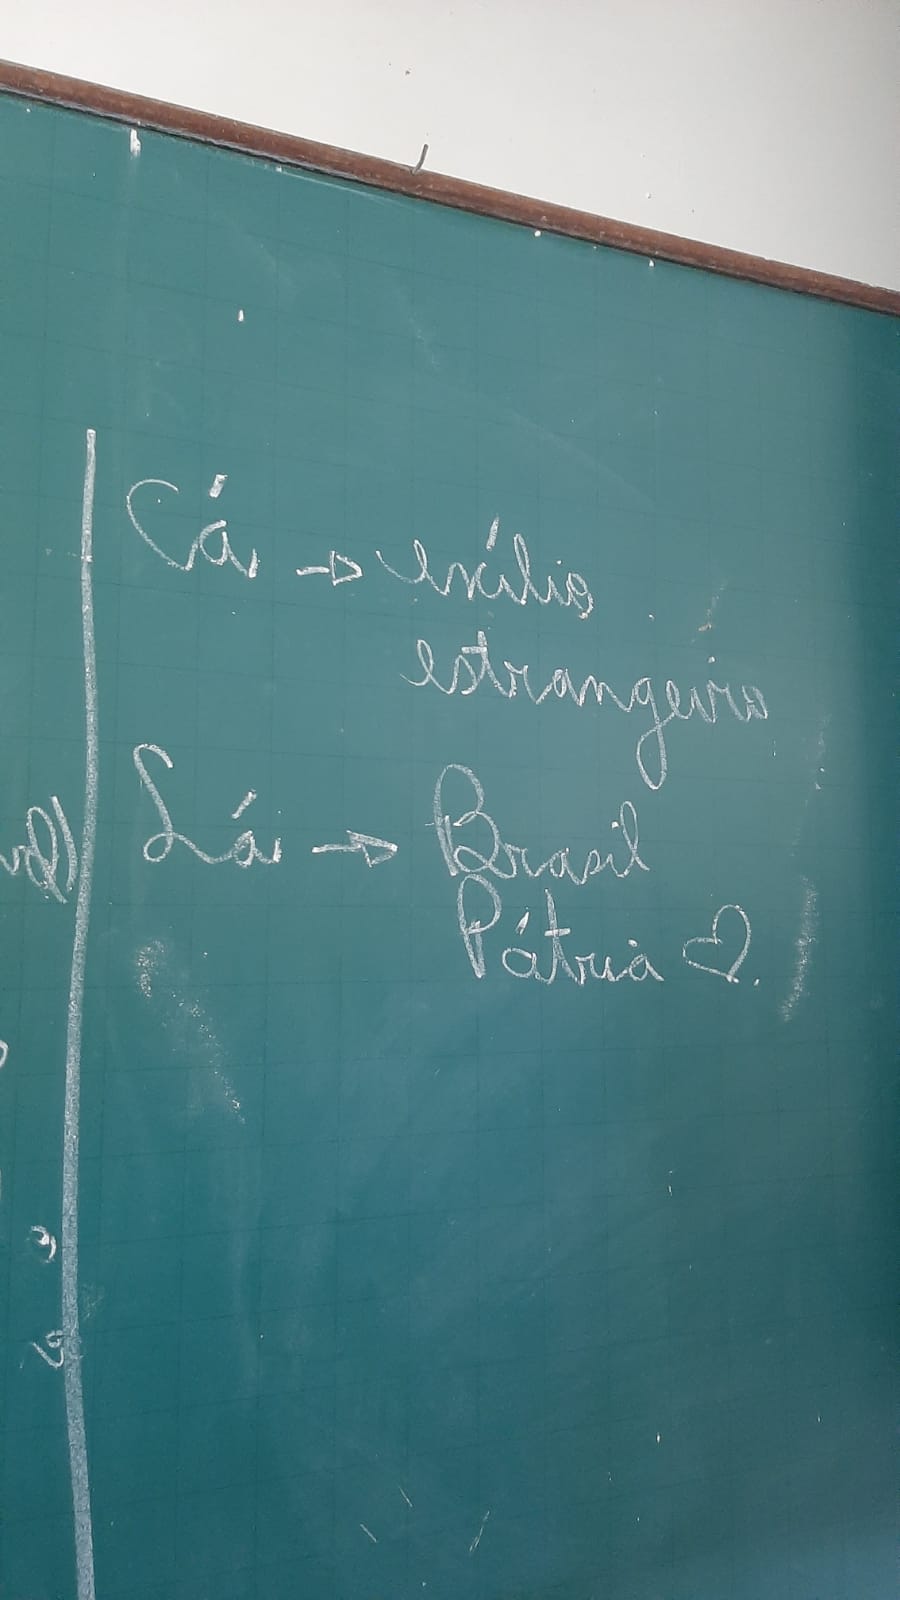 Cá → exílio
estrangeiro
Lá → Brasil
Pátria ♡.